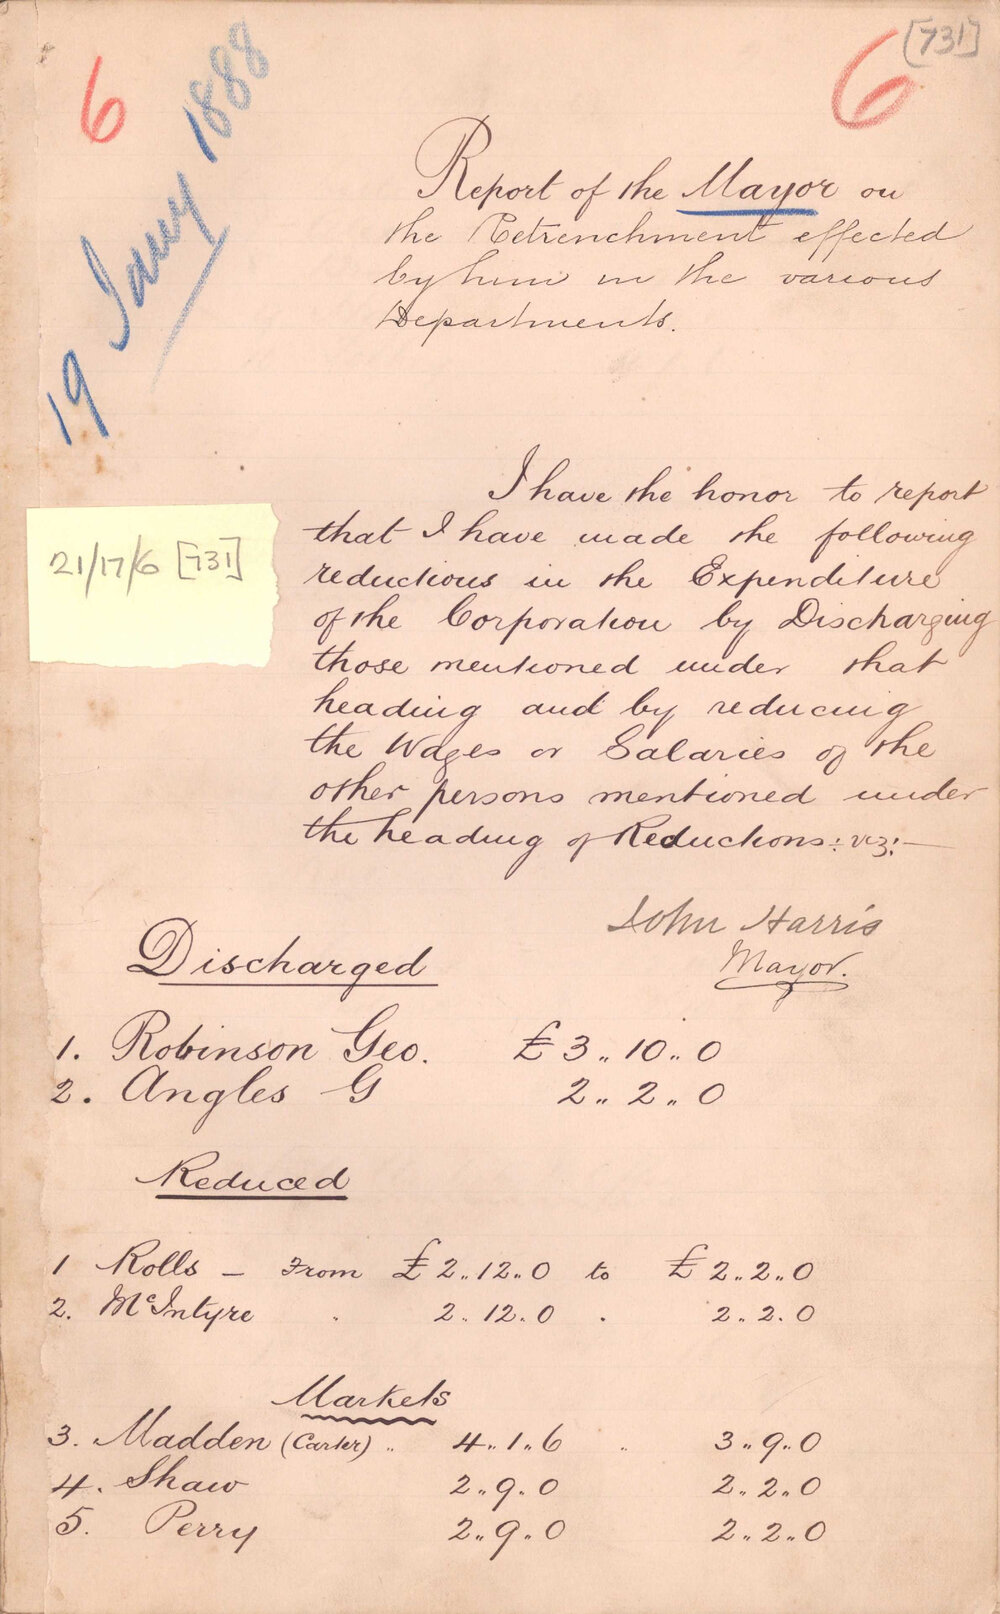 6
19 Jany 1888
6
[731]
Report of the Mayor on
the Retrenchment effected
by him in the various
Departments.
I have the honor to report
that I have made the following
reductions in the Expenditure
of the Corporation by Discharging
those mentioned under that
heading and by reducing
the Wages or Salaries of the
other persons mentioned under
the heading of Reductions: viz:—
21/17/6 [731]
John Harris
Mayor.
Discharged
1. Robinson Geo. £ 3 " 10 " 0
2. Angles G 2 " 2 " 0
Reduced
1 Rolls — From £ 2 " 12 " 0 to £ 2 " 2 " 0
2. McIntyre " 2 " 12 " 0 " 2 " 2 " 0
Markets
3. Madden (Carter) " 4 " 1 " 6 " 3 " 9 " 0
4. Shaw 2 " 9 " 0 2 " 2 " 0
5. Perry 2 " 9 " 0 2 " 2 " 0